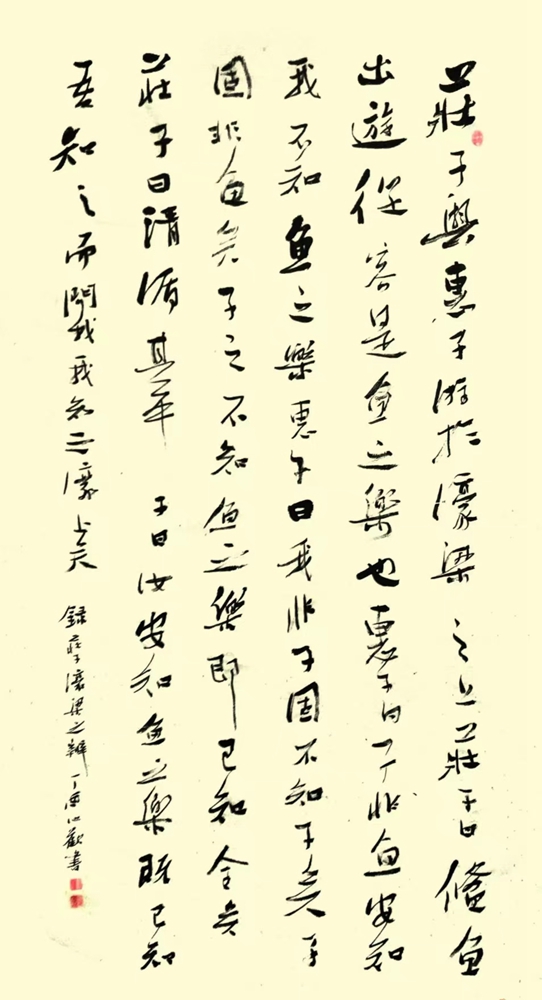 莊子與惠子游於濠梁之上莊子曰儵魚
出遊從容是魚之樂也惠子曰子非魚安知
我不知魚之樂惠子曰我非子固不知子矣子
固非魚矣子之不知魚之樂即已知全矣
莊子曰請循其本子曰汝安知魚之樂既已知
吾知之而問我我知之濠上矣
錄莊子濠梁之辯丁酉心歡書